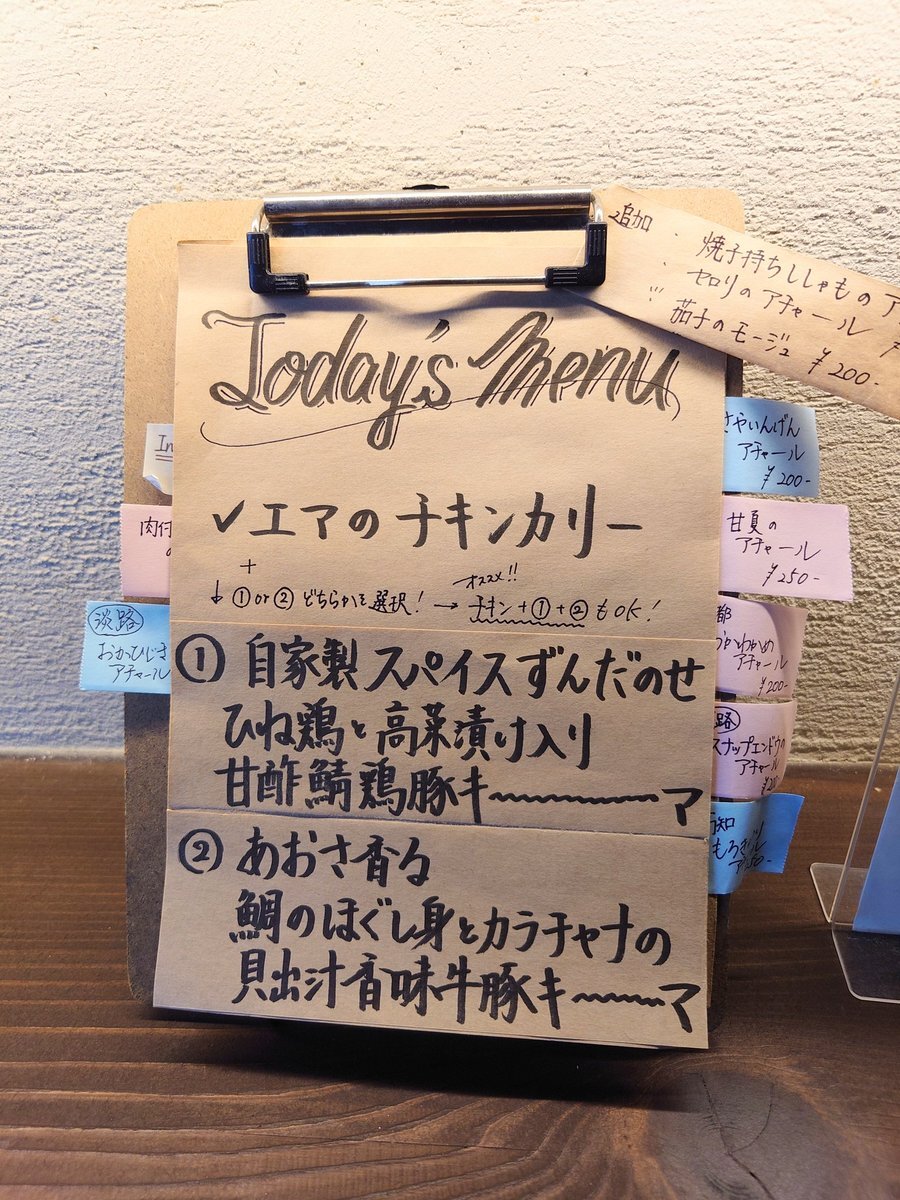 Today's Menu
✓エアのチキンカリー
+
↓①or②どちらかを選択!→チキン+①+②もOK!
オススメ!!
①自家製スパイスずんだのせ
ひね鶏と高菜漬け入り
甘酢鯖鶏豚キ〜〜〜マ
②あおさ香る
鯛のほぐし身とカラチャナの
貝出汁香味牛豚キ〜〜〜マ
追加
焼子持ちししゃものア
セロリのアチャール
茄子のモージュ ¥200-
さやいんげん
アチャール
¥200-
甘夏の
アチャール
¥250-
都
わかめ
アチャール
¥200-
路
スナップエンドウの
アチャール
知
In
肉付
淡路
おかひじき
アチャール